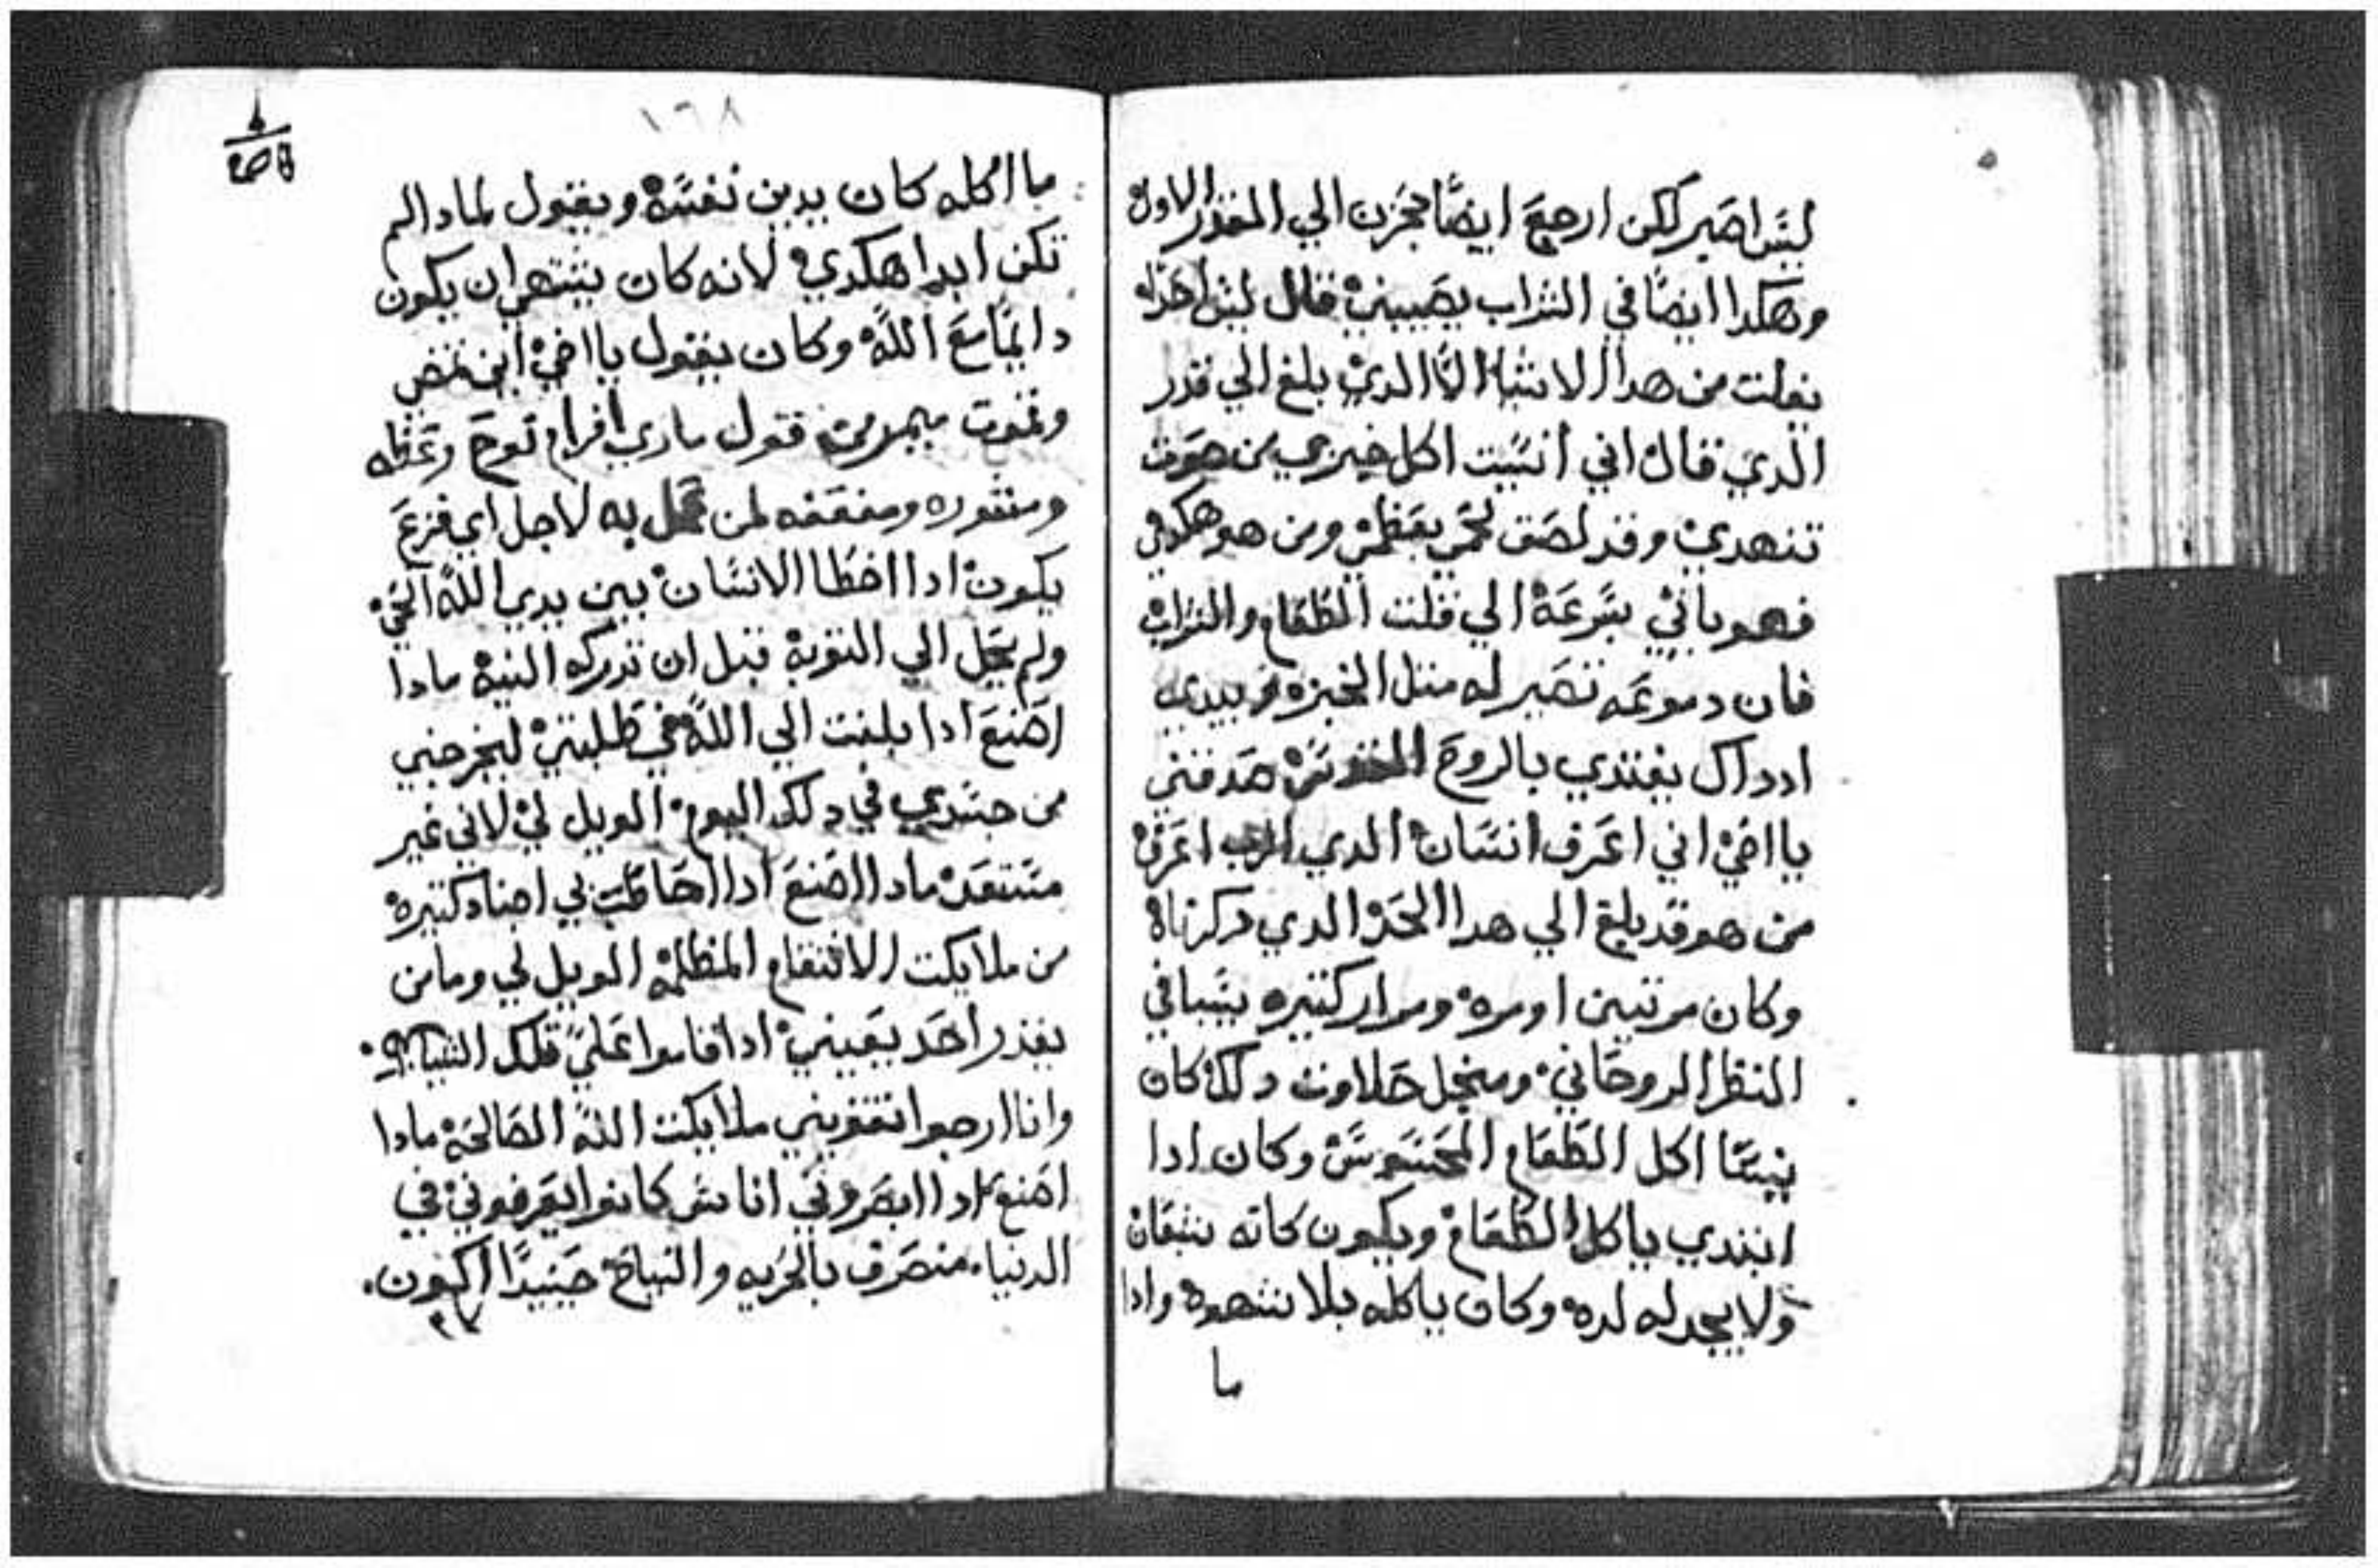 ليس اصير لكن ارجع ايضًا بحزن الي المقدر الاول
وهكدا ايضًا في التراب يصيبني قال ليس احدًا
يفلت من هدا الاشيا الّا الدي بلغ الي قدر
الدي قال اني انسيت اكل خبزي من صوت
تنهدي وقد لصق لحمي بعظمي ومن هو هكدي
فهو ياتي بسرعة الي قلت الطعام والشراب
فان دموعه تصير له متل الخبزه ويبدي
اد داك يغتدي بالروح القدس صدقني
يا اخي اني اعرف انسان الدي الرب اعرف
من هو قد بلغ الي هدا الحد الدي دكرناه
وكان مرتين او مره ومرار كتيره يسبا في
النظر الروحاني ومنجل حلاوت دلك كان
ينسا اكل الطعام المحسوس وكان ادا
ابتدي ياكل الطعام ويكون كانه شبعان
ولا يجد له لده وكان ياكله بلا شهوه وادا
ما
١٦٨
ما اكله كان يدين نفسه ويقول لمادا لم
تكن ابدا هكدي لانه كان يشتهي ان يكون
دايمًا مع اللّه وكان يقول يا اخي اين نمضي
ونموت قول ماري افرام نوح وعظه
لمن عمل به لاجل اي فزع
يكون ادا اخطا الانسان بين يدي اللّه الحي
ولم يعجل الي التوبة قبل ان تدركه النيه مادا
اصنع ادا بلغت الي اللّه في طلبتي ليخرجني
من جسدي في دلك اليوم الويل لي لاني غير
مستعد مادا اصنع ادا احاطت بي اجناد كتيره
من ملايكت الانتقام المظلمه الويل لي وما من
يقدر احد يعيني ادا قاموا علي تلك
وانا ارجوا تقويني ملايكت اللّه الصالحه مادا
اصنع ادا ابصروني اناس كانوا يعرفوني في
الدنيا. متصرف بالحريه والنياح حينيدًا اكون.